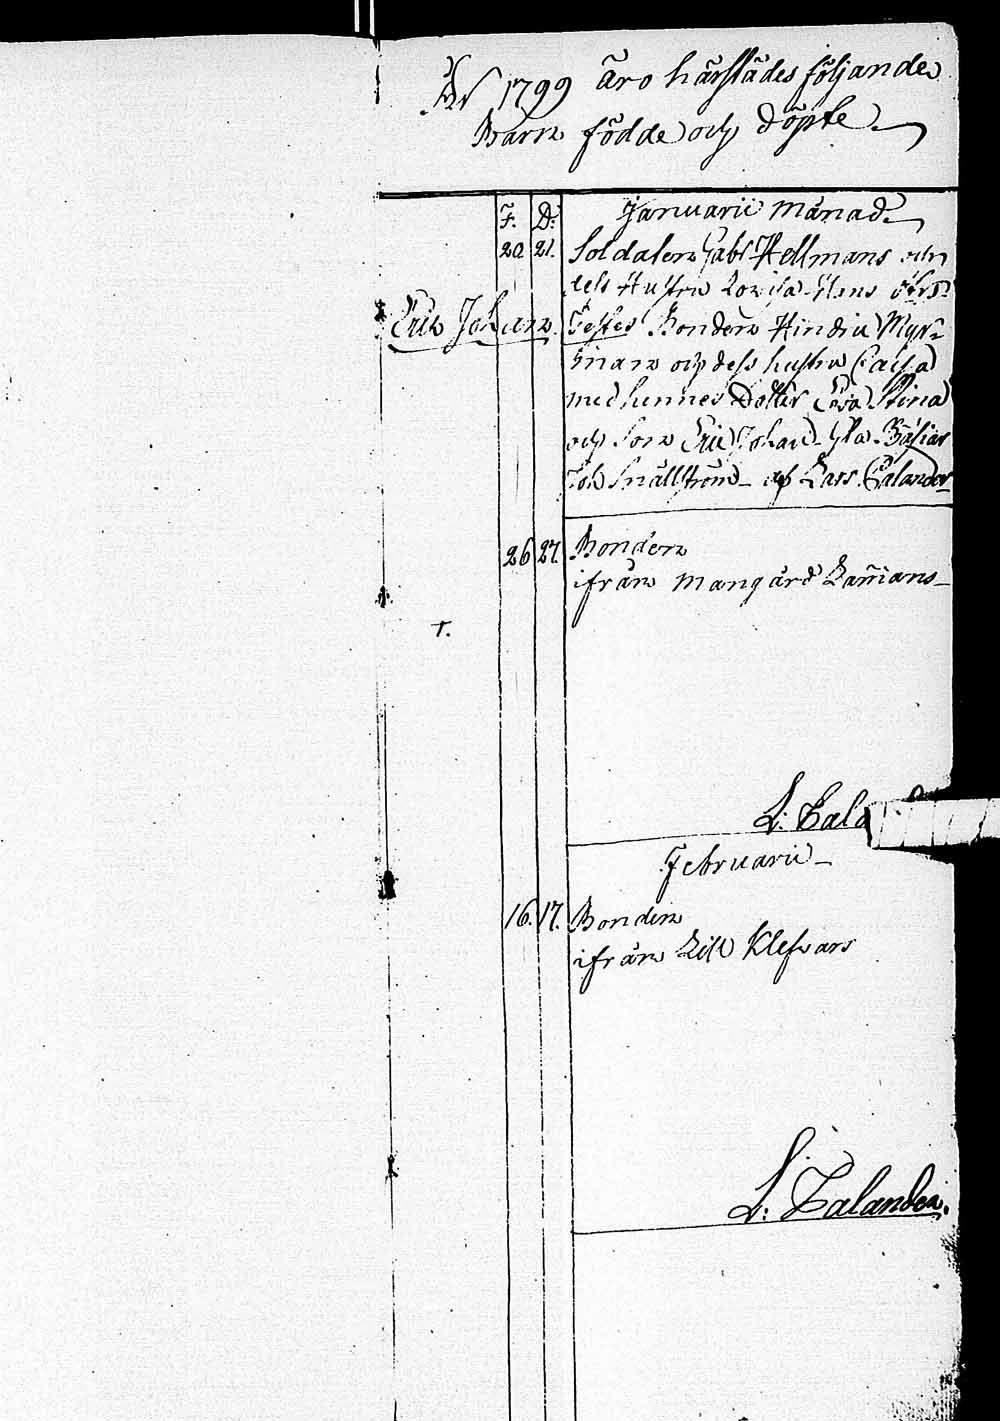 År 1799 äro härstädes följande
Barn födde och döpte
F. D: Januarii Månad
20 21. Soldaten Gabr Hellmans och
dess Hustru Lovisa
Eric Johan. Testes Bonden Hindric Myr-
man och dess hustru Caisa
med hennes Dotter Eva Stina
och Son Eric Johan
Joh Snällström - af Lars Calander
26 27. Bonden
ifrån Mangård Lassians
T.
L: Cala
Februarii
16. 17. Bonden
ifrån Lill Klefvars
L: Calander.